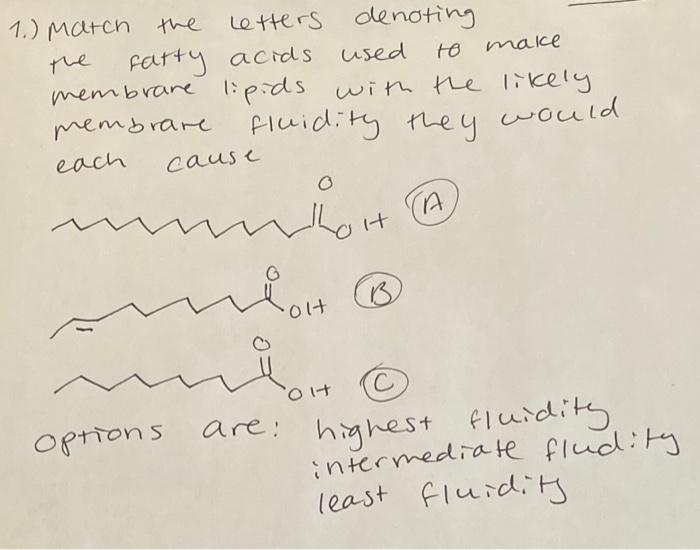 1.) Match the letters denoting
the fatty acids used to make
membrane lipids with the likely
membrane fluidity they would
each cause
O
OH A
O
OH B
O
OH C
options are: highest fluidity
intermediate fludity
least fluidity